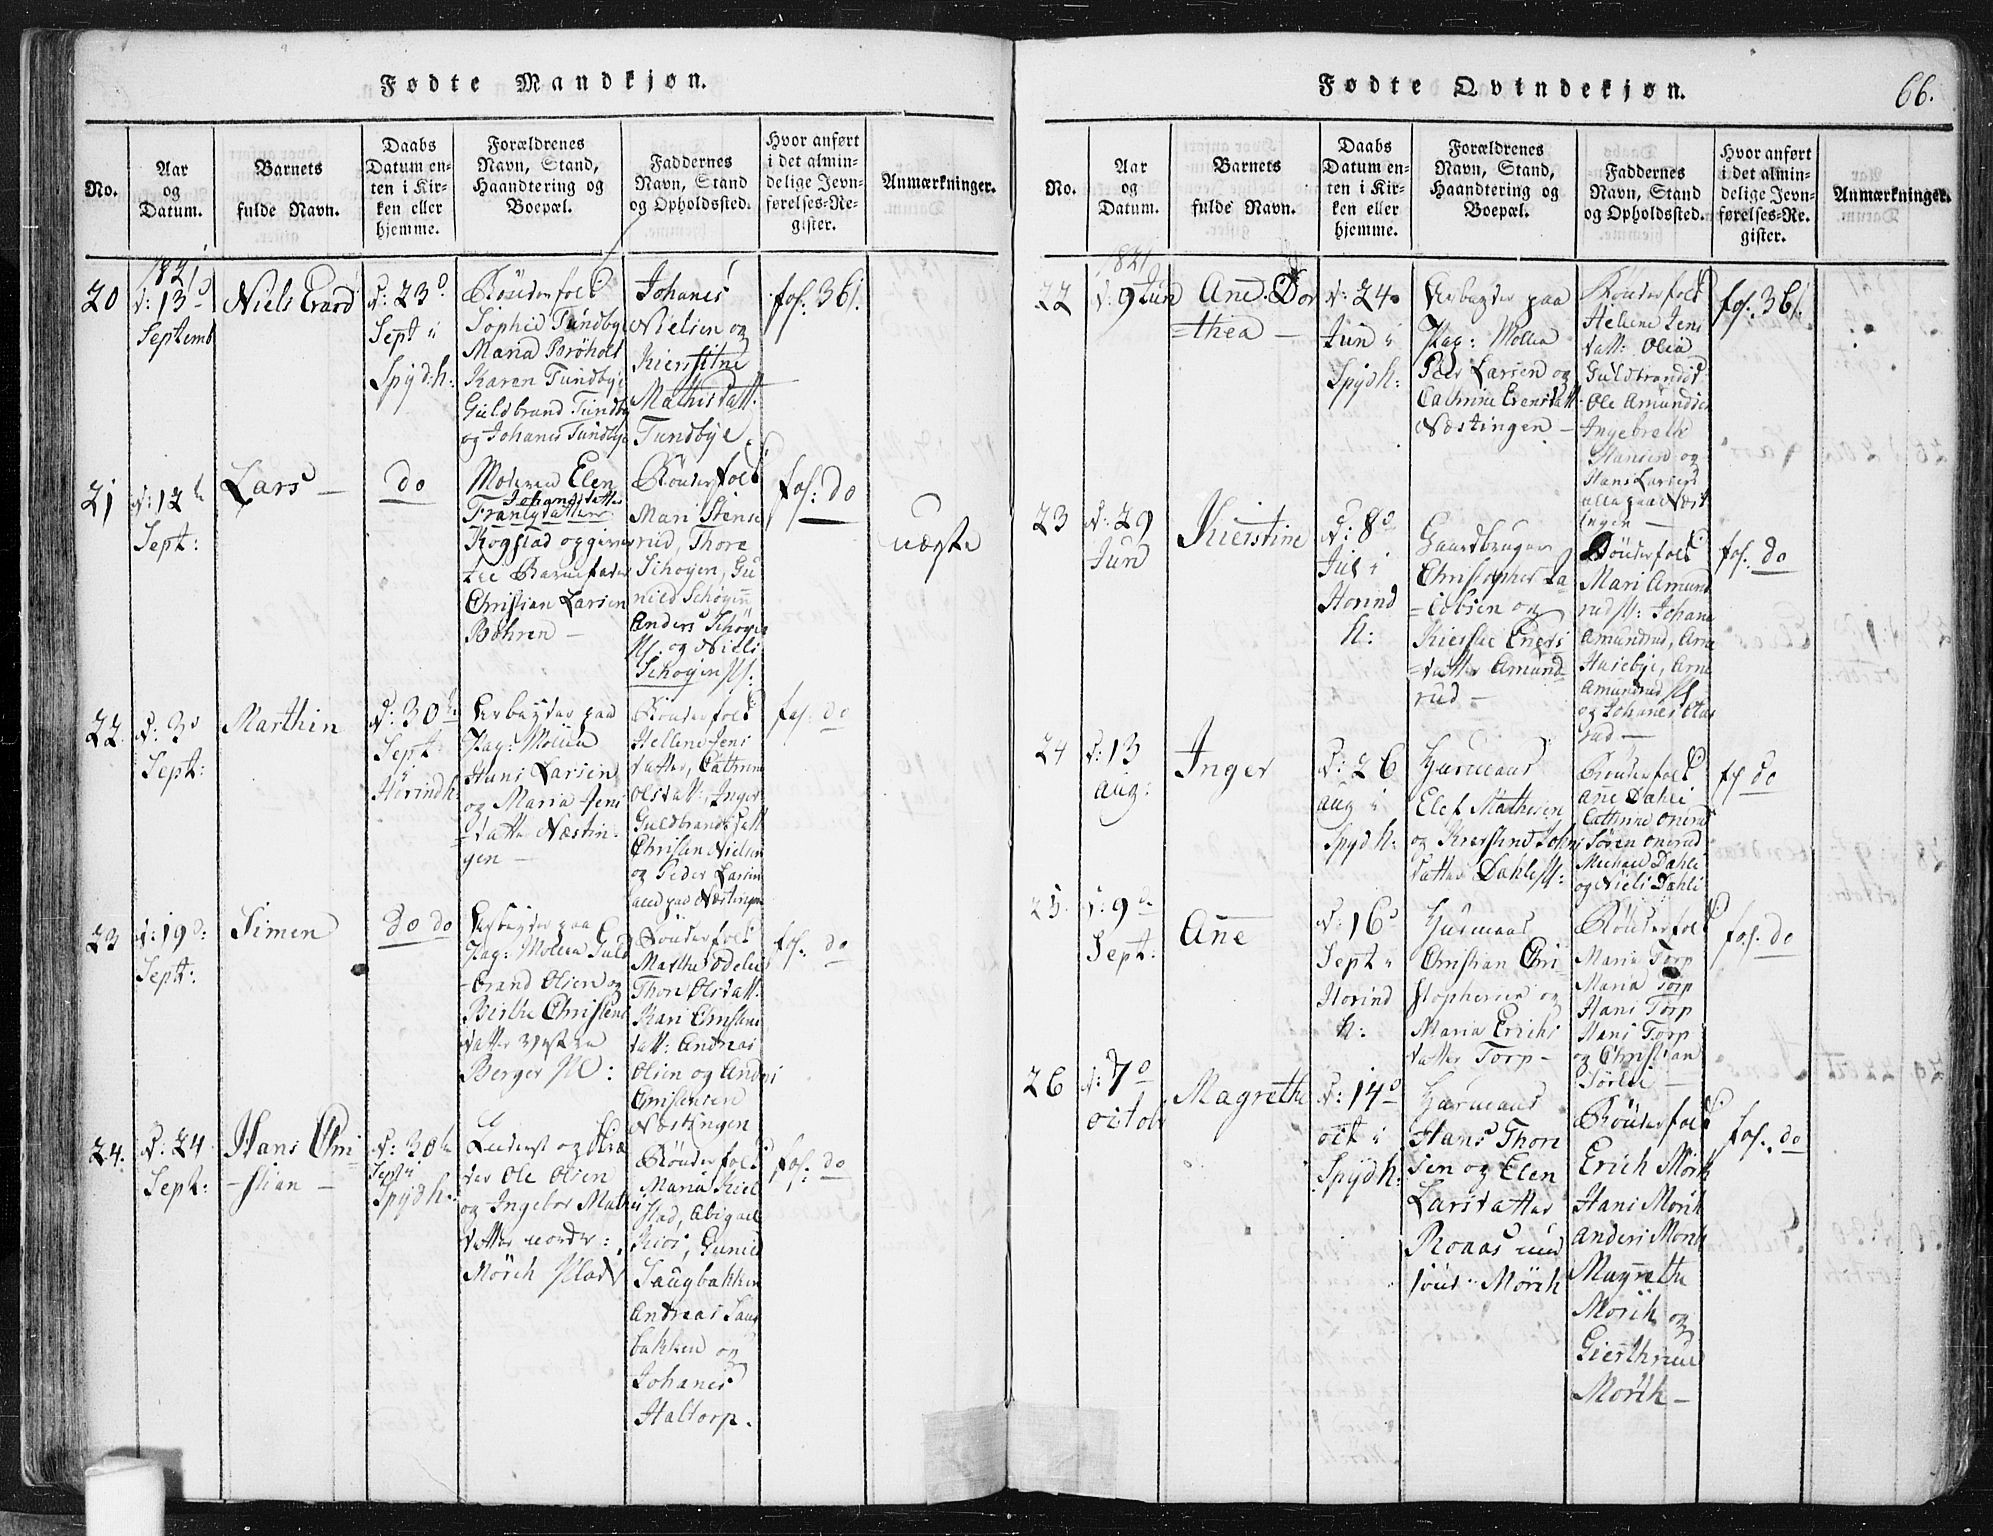 Fødte Mandkjøn.
No.
Aar
og
Datum.
Barnets
fulde Navn.
Daabs
Datum en-
ten i Kir-
ken eller
hjemme.
Forældrenes
Navn, Stand,
Haandtering og
Boepæl.
Faddernes
Navn, Stand
og Opholdssted.
Hvor anført
i det almin-
delige Jevn-
førelses-Re-
gister.
Anmærkninger.
1821
20
d: 13
Septemb
Niels Evard
d: 23
Sept i
Spydh:
Bønderfolk
Sophie Tundbye
Maria Brøholt
Karen Tundbye
Guldbrand Tundby
og Johanes Tundbye
Johanes
Nielsen og
Kierstine
Mathisdatt:
Tundbye
fol: 361.
21
d: 12
Sept:
Lars
do
Moderen Elen
Johansdatter
Frantzdatter
Kogstad opgiver
til Barnefader
Christian Larsen
Bøhren
Bønderfolk
Mari Stens-
rud, Thore
Schøyen, Gu-
nild Schøyen
Anders Schøyen
Pl: og Niels
Schøyen Pl:
fol: do
uægte
22
d: 3
Sept:
Marthin
d: 30
Sept
Hørindh
Verbøyder paa
Pag: Molea
Hans Larsen
og Maria Jens
datter Næstin-
gen
Bønderfolk
Hellene Jens
datter, Cathrine
Olsdatt: Inger
Guldbrandsdatt
Christen Nielsen
og Peder Larsen
alle paa Næstingen
fol: do
23
d: 19
Sept:
Simen
do do
Guld
brand Olsen og
Birthe Christens
datter
Berger Pl:
Bønderfolk
Marthe Ødelie
Thore Olsdatt:
Kari Christens
datt: Andreas
Olsen og Anders
Christensen
Næstingen
fol: do
24.
d: 24
Sept:
Hans Chri-
stian
d: 30
Sept i
Spydh:
Ole Olsen
og Ingebor Mathis
datter
Mörch Plads
Bønderfolk
Maria Kiel
stad, Abigael
Kios, Gunild
Saugbakken
Andreas Saug
bakken og
Johanes
Haltorp.
fol: do
Fødte Qvindekjøn.
66.
No.
Aar
og
Datum.
Barnets
fulde Navn.
Daabs
Datum en-
ten i Kir-
ken eller
hjemme.
Forældrenes
Navn, Stand,
Haandtering og
Boepæl.
Faddernes
Navn, Stand
og Opholdssted.
Hvor anført
i det almin-
delige Jevn-
førelses-Re-
gister.
Anmærkninger.
1821
22
d. 9 Juni
Ane. Dor
=thea
d: 24
Jun i
Spydh:
Pag: Molea
Peder Larsen og
Cathrine Evensdatt
Næstingen
Bønderfolk
Helene Jens
datt: Olea
Guldbrandsd
Ole Amundsen
Ingebreth
Hansen og
Hans Larsen
alle paa Næst
ingen
fol. 361.
23
d: 29
Jun
Kierstine
d: 8
Jul i
Horind
h:
Gaardbruger
Christopher Ja-
=cobsen og
Kierstie Evers
=datter Amund
rud
Bønderfolk
Mari Amund
rud Pl: Johane
Amundrud, Arne
Husebye, Arne
Amundrud Pl
og Johanes
rud
fol. do
24
d: 13
Aug:
Inger
d: 26
Aug i
Spydh:
Huusmand
Elef Mathisen
og Kierstine Johns
datter Dahle Pl:
Bønderfolk
Ane Dahli
Cathrine Onerud
Søren Onerud
Michael Dahli
og Niels Dahli
fol do
25
d: 9
Sept:
Ane
d: 16
Sept i
Horind
h:
Huusmand
Christian Chri-
stophersen og
Maria Erichs
datter Torp
Bønderfolk
Maria Torp
Maria Torp
Hans Torp
Hans Torp
og Christian
Sørlie
fol. do
26
d: 7
octobr
Magrethe
d: 14
oct i
Spydh:
Huusmand
Hans Thore
sen og Elen
Larsdatter
Ronaas und
Mörch
Bønderfolk
Erich Mörk
Hans Mörch
Anders Mörch
Magrethe
Mörch og
Gierthrue
Mörch
fol. do